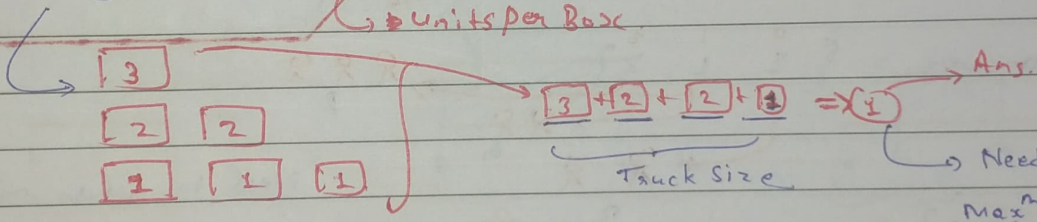 Units Per Box
3
2 2
1 1 1
3 + 2 + 2 + 1 => 1
Ans.
Truck Size
Need
Maxm